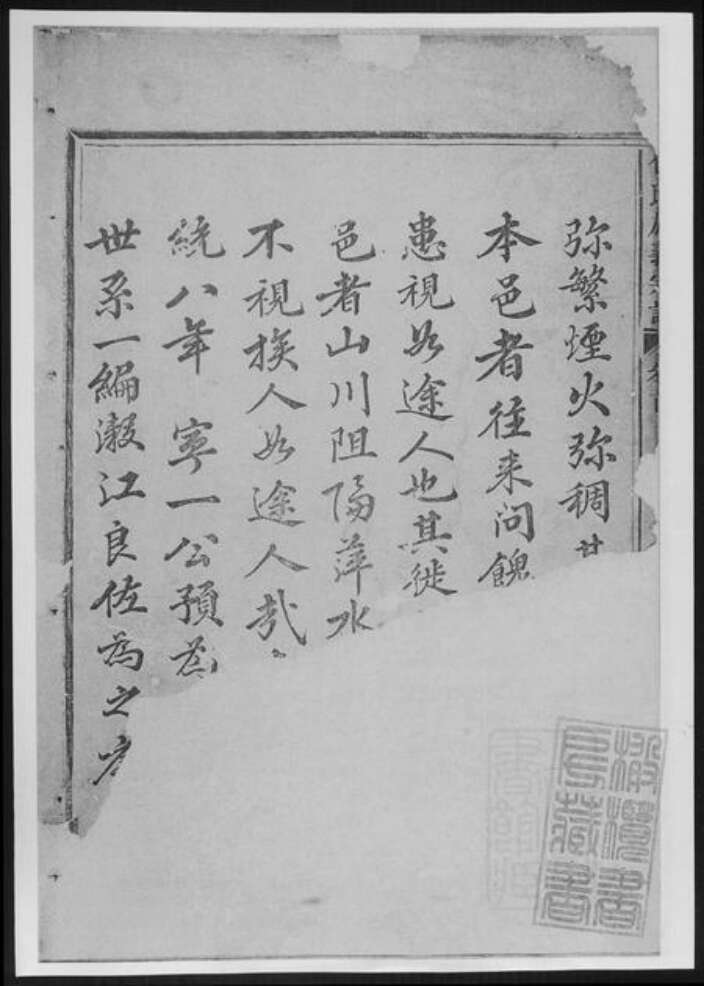 弥繁煙火弥稠其
本邑者往来问餽
患視如途人也其徙
邑者山川阻隔萍水
不視族人如途人哉
統八年 寧一公預為
世系一編瀫江良佐為之序
藏書